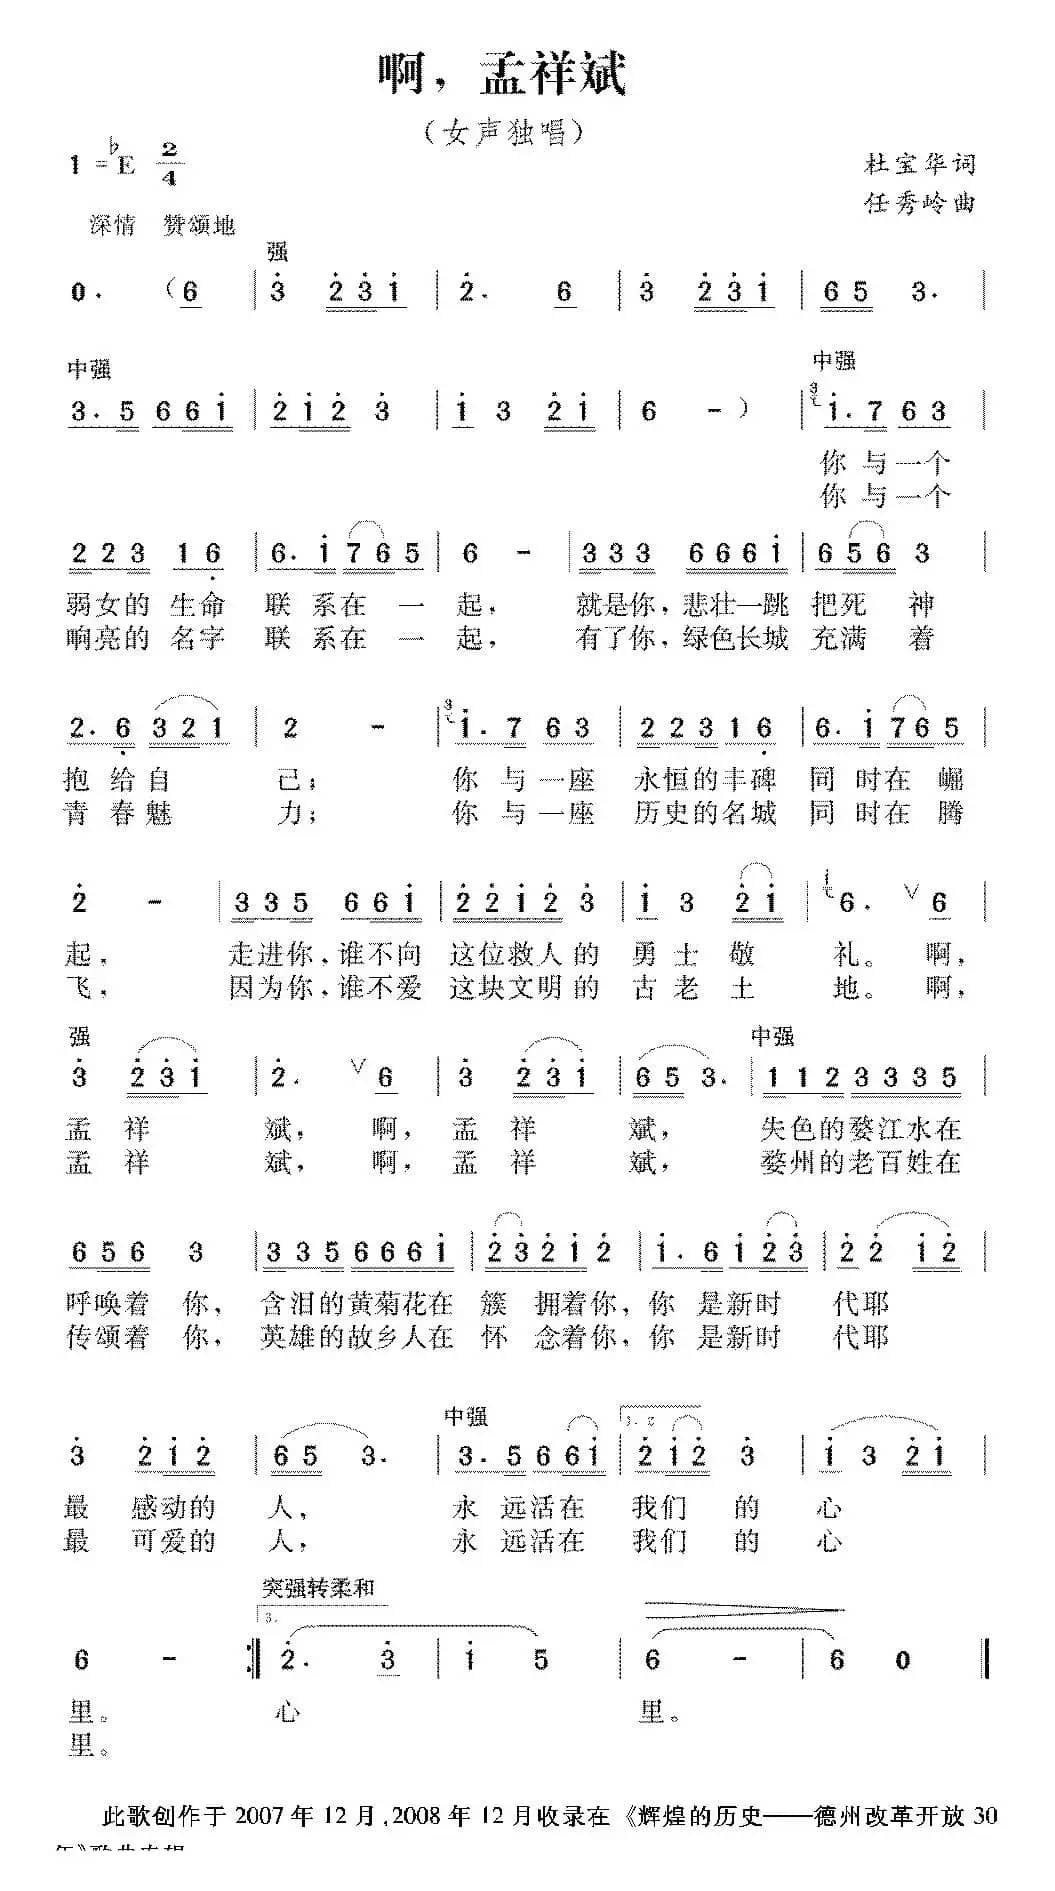 啊，孟祥斌
（女声独唱）
1=♭E 2/4
杜宝华词
深情 赞颂地
任秀岭曲
强
0. （6 | 3̇ 2̇3̇1̇ | 2̇. 6 | 3̇ 2̇3̇1̇ | 65 3. |
中强 中强
3.5 661̇ | 2̇1̇2̇ 3̇ | 1̇ 3 2̇1̇ | 6 -） | 3 1̇.7 63 |
你与一个
你与一个
223 16̣ | 6.1̇ 765 | 6 - | 333 6661̇ | 656 3 |
弱女的生命联系在一起，就是你，悲壮一跳把死神
响亮的名字联系在一起，有了你，绿色长城充满着
2.6̣ 321 | 2 - | 3 1̇.7 63 | 22316̣ | 6.1̇ 765 |
抱给自己；你与一座永恒的丰碑同时在崛
青春魅力；你与一座历史的名城同时在腾
2̇ - | 335 661̇ | 2̇2̇1̇2̇ 3̇ | 1̇ 3 2̇1̇ | 1̇ 6. ∨ 6 |
起，走进你，谁不向这位救人的勇士敬礼。啊，
飞，因为你，谁不爱这块文明的古老土地。啊，
强 中强
3̇ 2̇3̇1̇ | 2̇. ∨ 6 | 3̇ 2̇3̇1̇ | 65 3. | 112 3335 |
孟祥斌，啊，孟祥斌，失色的婺江水在
孟祥斌，啊，孟祥斌，婺州的老百姓在
656 3 | 335 6661̇ | 2̇3̇2̇1̇ 2̇ | 1̇.6 1̇2̇3̇ | 2̇2̇ 1̇2̇ |
呼唤着你，含泪的黄菊花在簇拥着你，你是新时代耶
传颂着你，英雄的故乡人在怀念着你，你是新时代耶
中强 1. 2
3̇ 2̇1̇2̇ | 65 3. | 3.5 661̇ | 2̇1̇2̇ 3̇ | 1̇ 3 2̇1̇ |
最感动的人，永远活在我们的心
最可爱的人，永远活在我们的心
突强转柔和
3.
6 - :‖ 2̇. 3̇ | 1̇ 5 | 6 - | 6 0 ‖
里。心里。
里。
此歌创作于2007年12月，2008年12月收录在《辉煌的历史——德州改革开放30